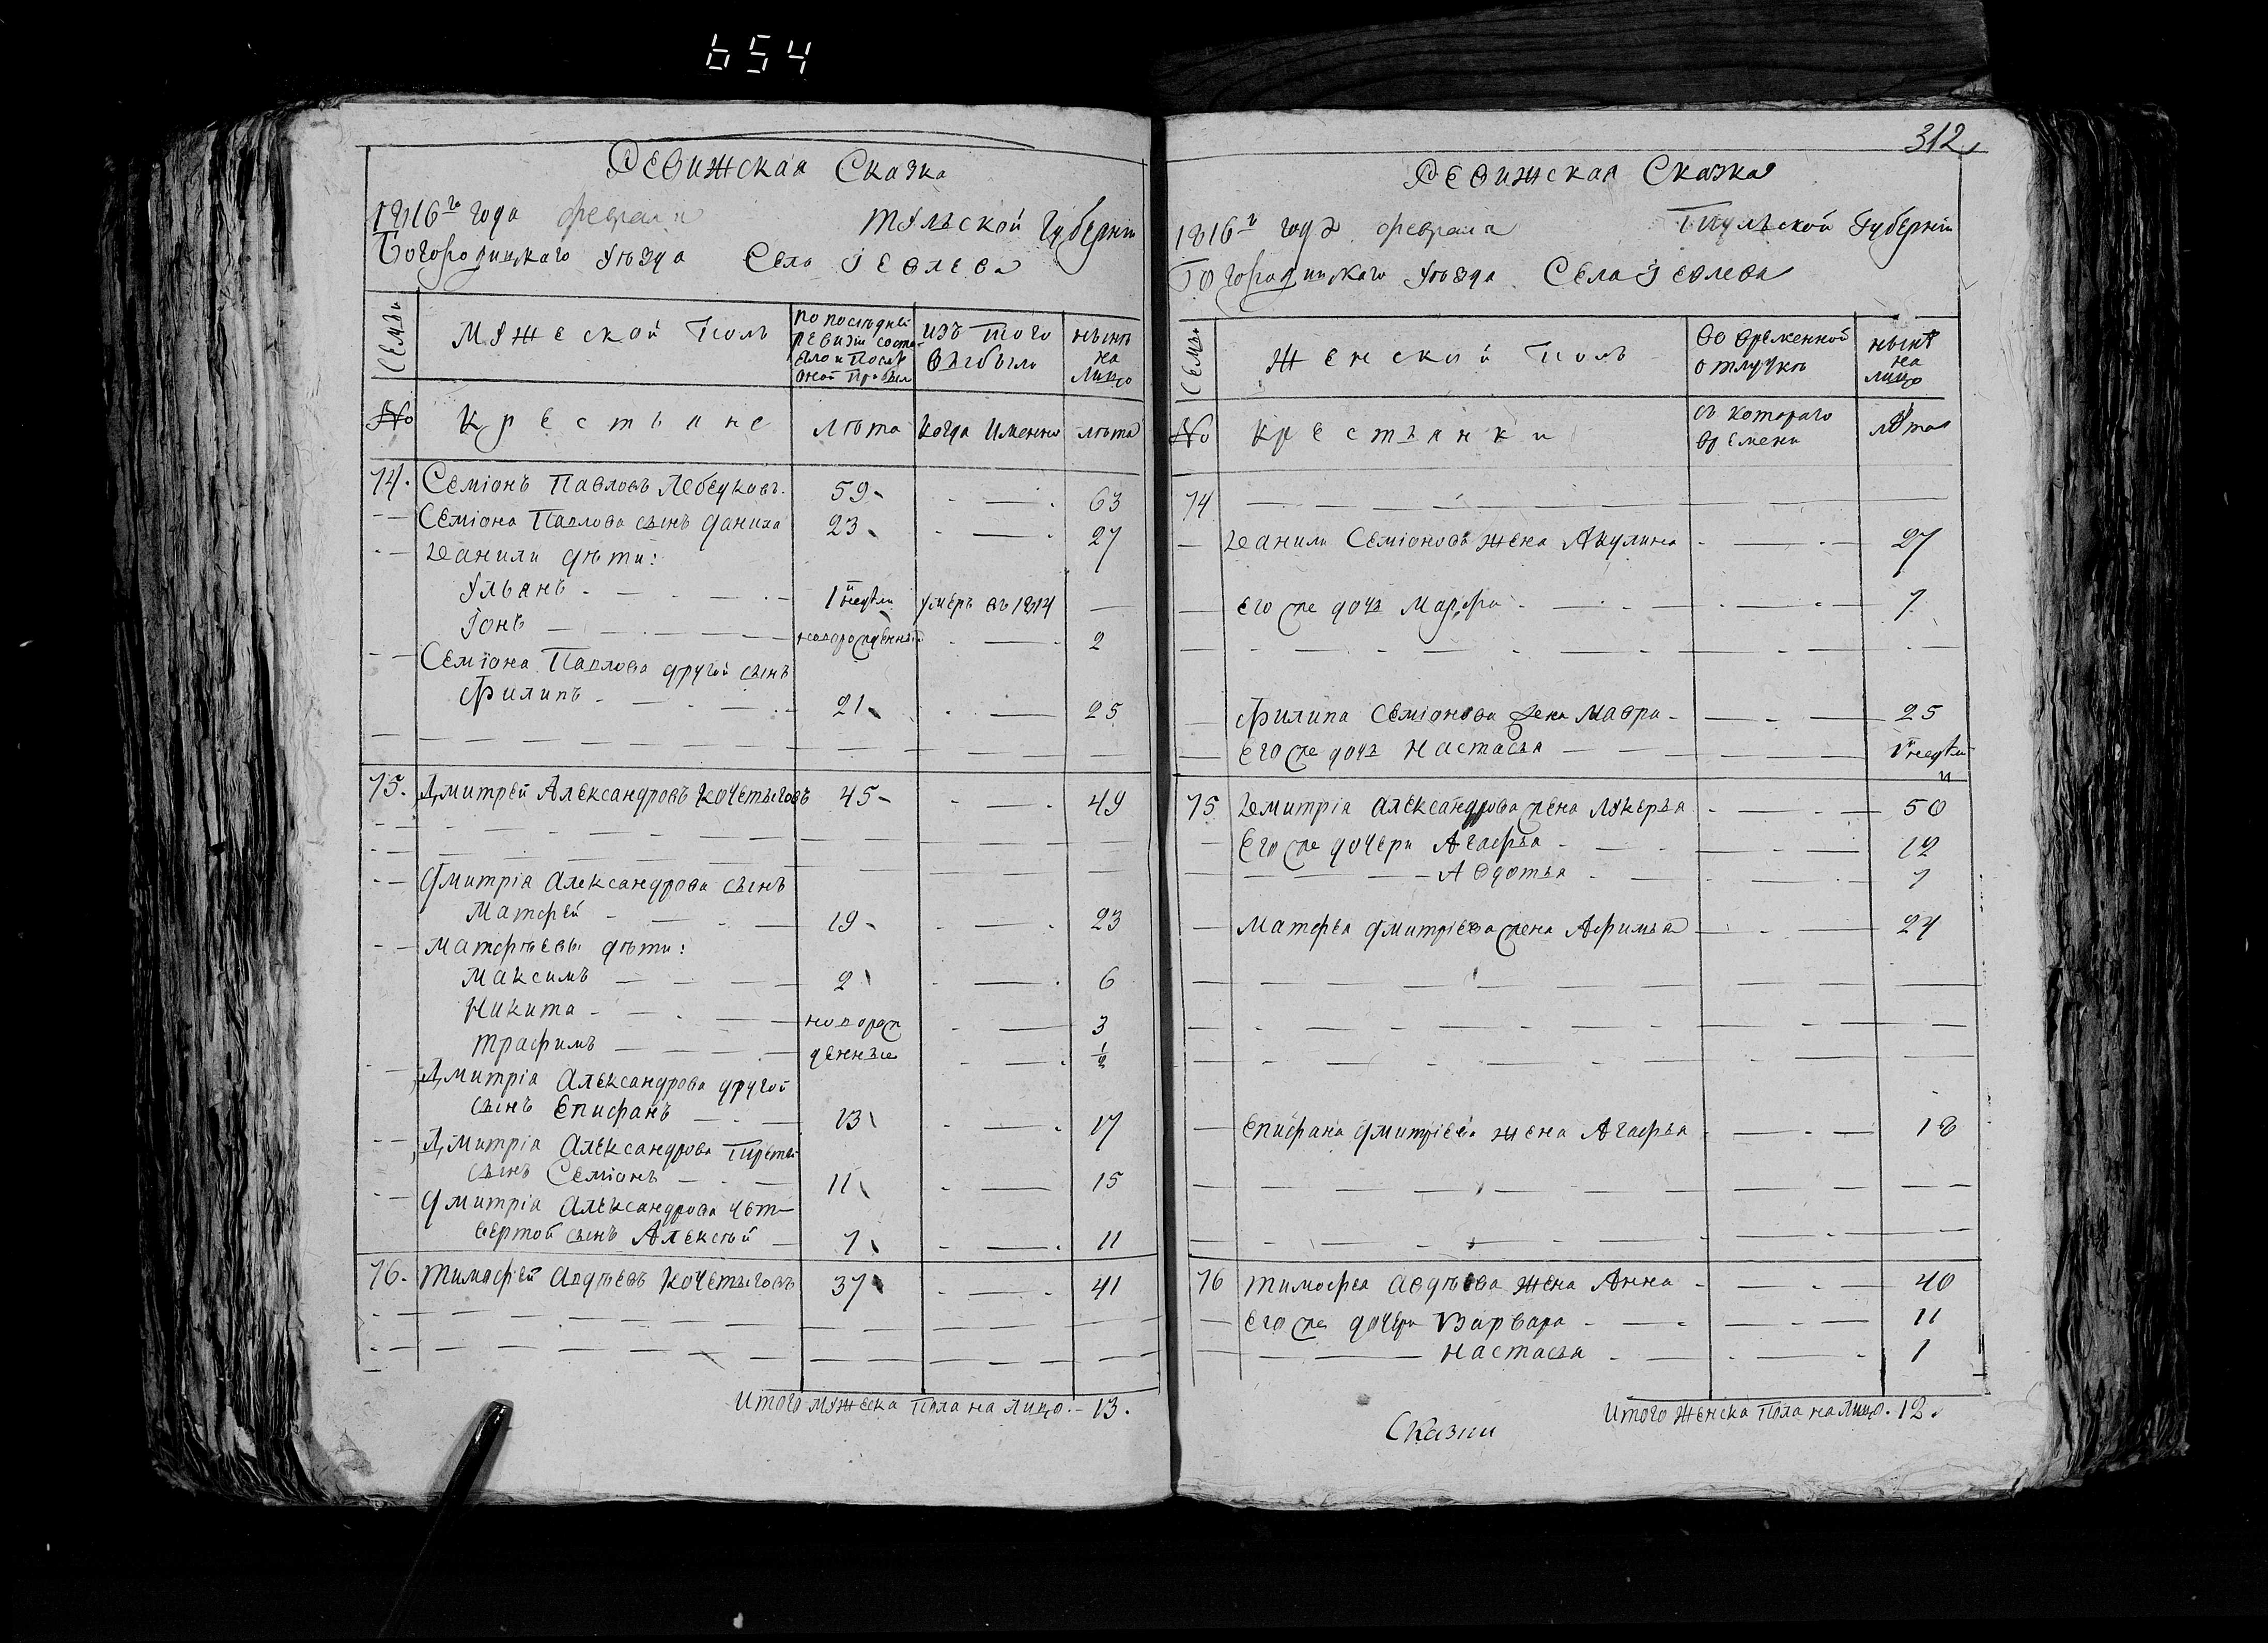 654
Ревижская Сказка
1816го года февраля Тульской Губерніи
Богородицкаго уѣзда Села Іевлева
Семьи
Мужеской Полъ
по последней ревизіи состояло и после оной прибыло
изъ того выбыло
нынѣ на лицо
№
Крестьяне
лѣта
когда именно
лѣта
14. Семіонъ Павловъ Лебедковъ. 59 63
Семіона Павлова сынъ Данила 23 27
Данилы дѣти:
Ульянъ 1 недели умеръ въ 1814
Іонъ новорожденный 2
Семіона Павлова другой сынъ
Филипъ 21 25
15. Дмитрей Александровъ Кочетыговъ 45 49
Дмитрія Александрова сынъ
Матфей 19 23
Матфѣевы дѣти:
Максимъ 2 6
Никита новорож 3
Трафимъ денные 1/2
Дмитрія Александрова другой
сынъ Епифанъ 13 17
Дмитрія Александрова третей
сынъ Семіонъ 11 15
Дмитрія Александрова чет-
вертой сынъ Алексѣй 7 11
16. Тимофей Авдѣевъ Кочетыговъ 37 41
Итого мужеска пола на лицо 13.
312
Ревижская Сказка
1816го года февраля Тульской Губерніи
Богородицкаго уѣзда Села Іевлева
Семьи
Женской Полъ
во временной отлучкѣ
нынѣ на лицо
№
Крестьянки
съ котораго времени
лѣта
14
Данилы Семіонова жена Акулина 27
его же дочь Марфа 7
Филипа Семіонова жена Мавра 25
его же дочь Настасья 1 недели
15 Дмитрія Александрова жена Лукерья 50
его же дочери Агафья 12
Авдотья 7
Матфея Дмитріева жена Афимья 24
Епифана Дмитріева жена Агафья 18
16 Тимофея Авдѣева жена Анна 40
его же дочери Варвара 11
Настасья 1
Итого женска пола на лицо. 12.